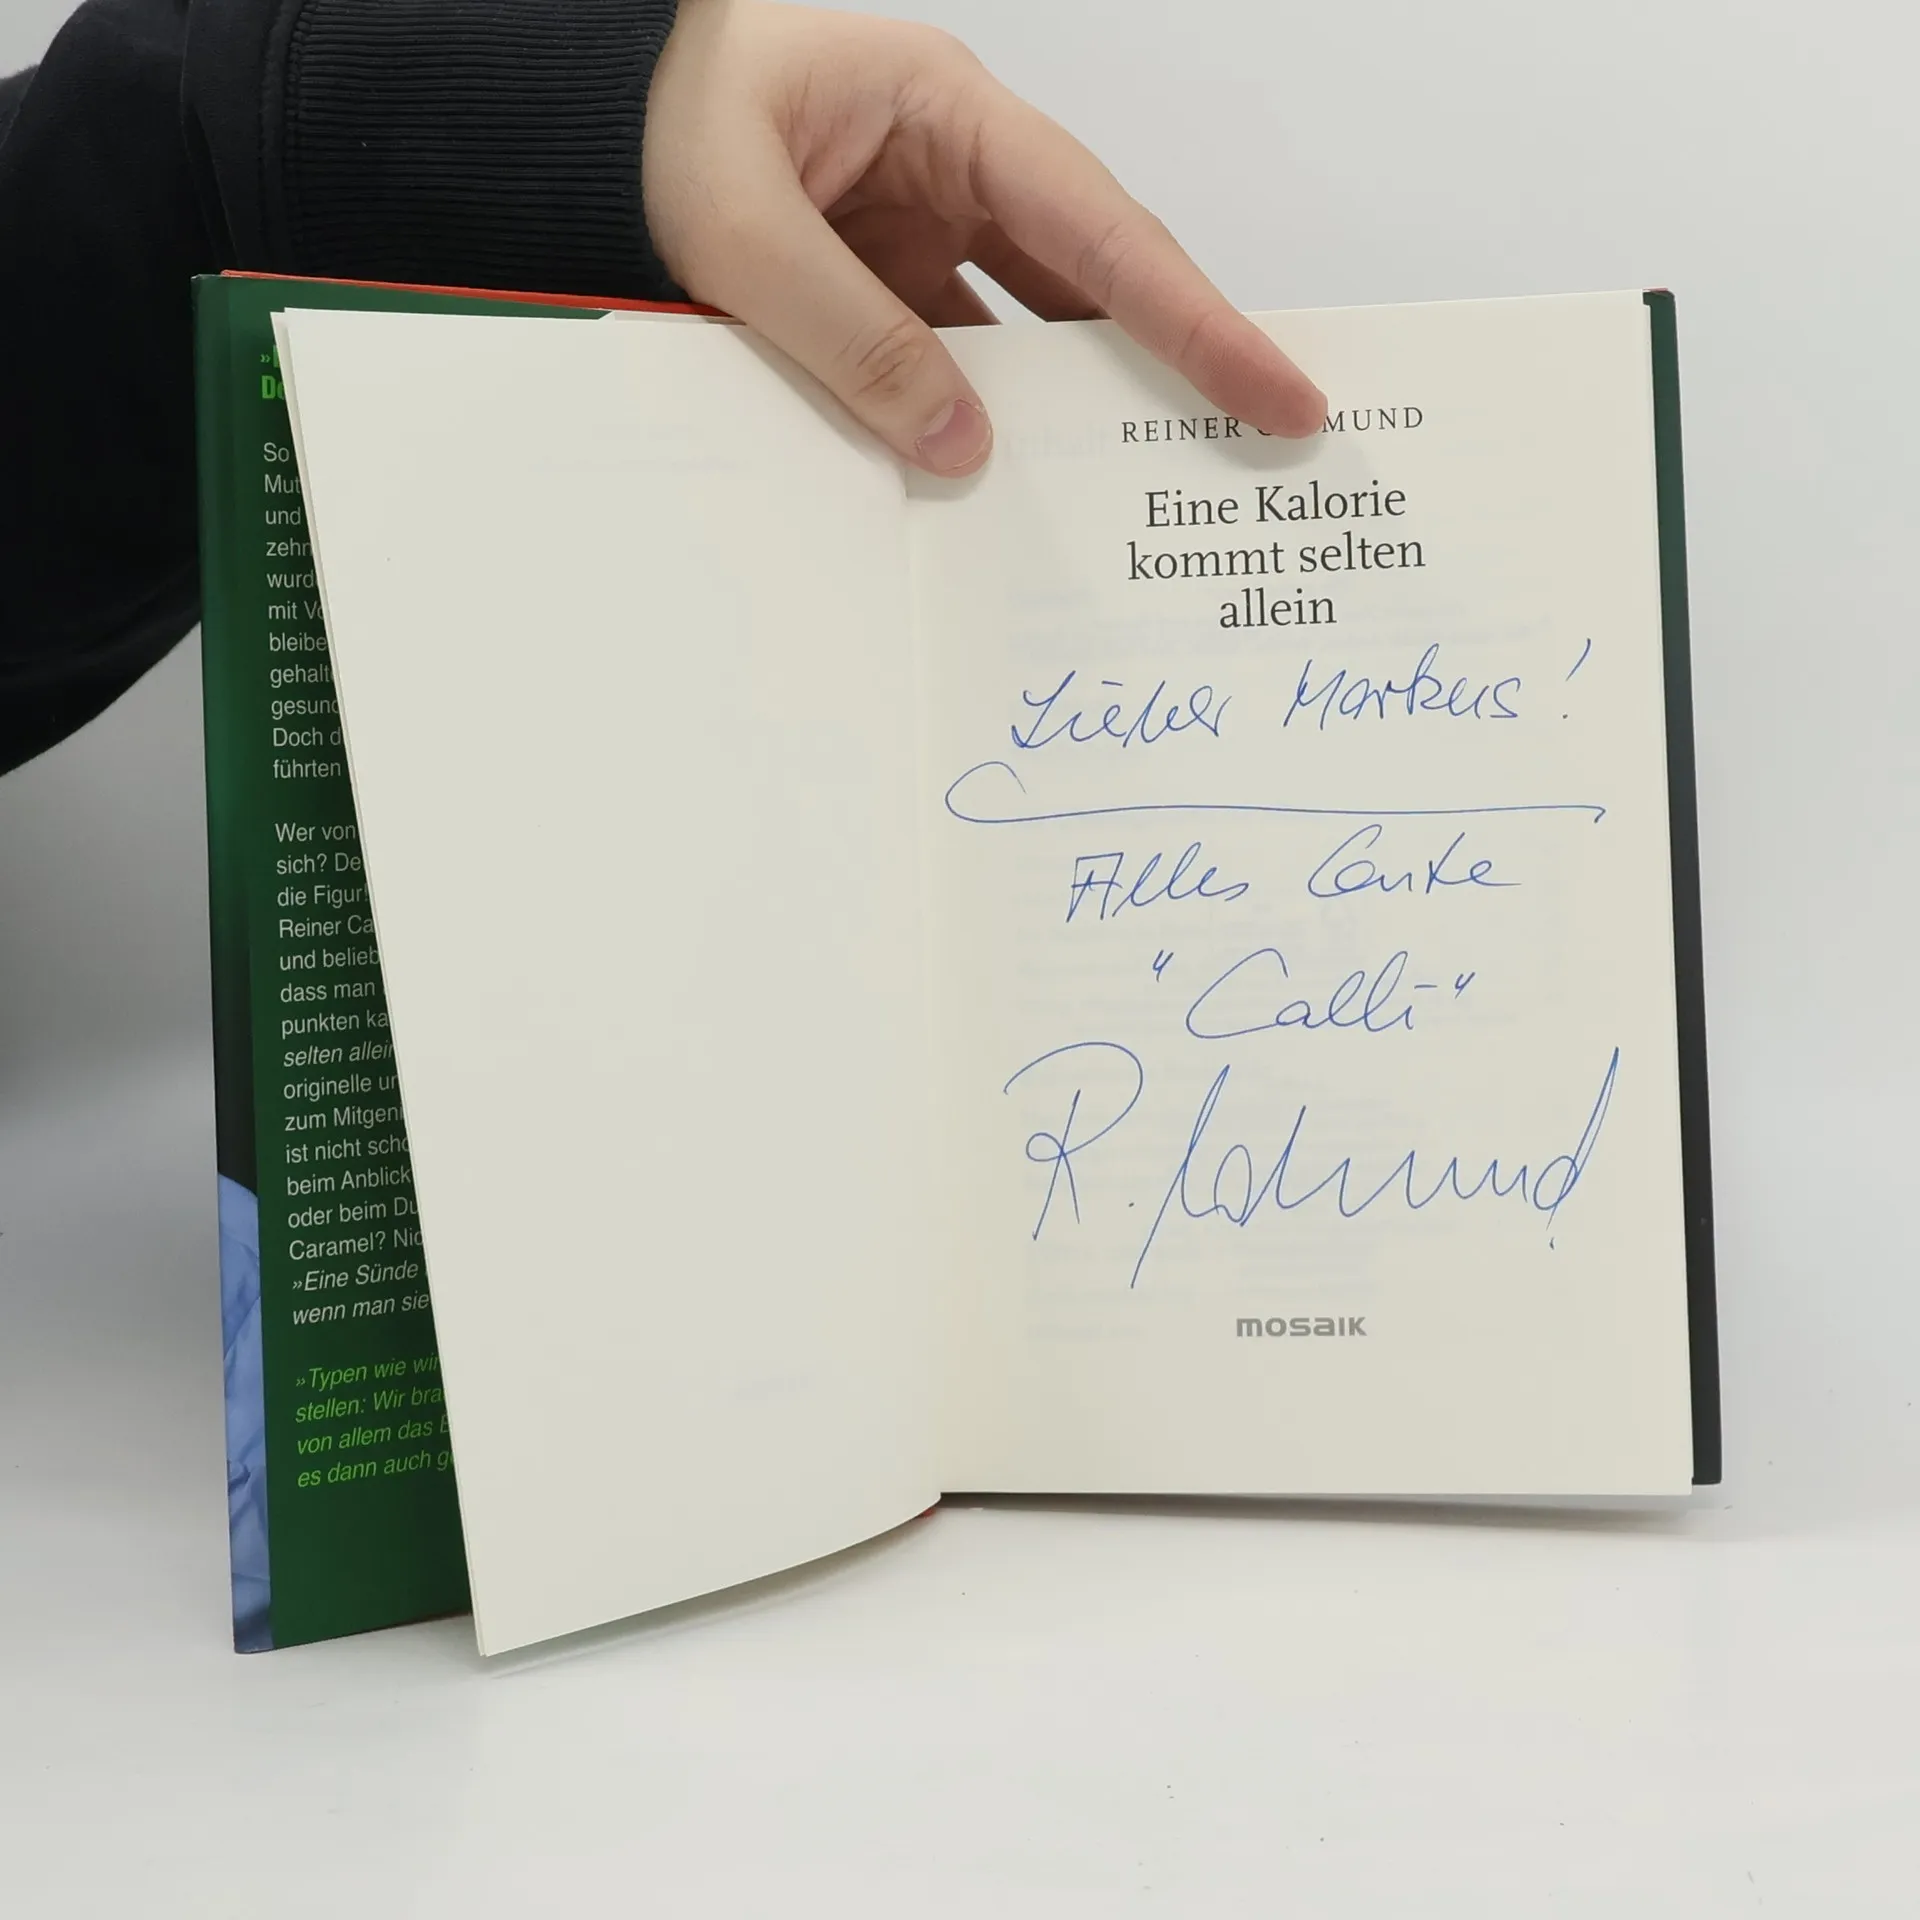 »
De
So
Mut
und
zehn
wurd
mit Vo
bleibe
gehalt
gesund
Doch d
führten
Wer von
sich? De
die Figur!
Reiner Ca
und belieb
dass man
punkten ka
selten allein
originelle un
zum Mitgeni
ist nicht scho
beim Anblick
oder beim Du
Caramel? Nic
»Eine Sünde
wenn man sie
»Typen wie wir
stellen: Wir bra
von allem das B
es dann auch g
REINER C MUND
Eine Kalorie
kommt selten
allein
Lieber Markus!
Alles Gute
"Calli"
R. Calmund
mosaik